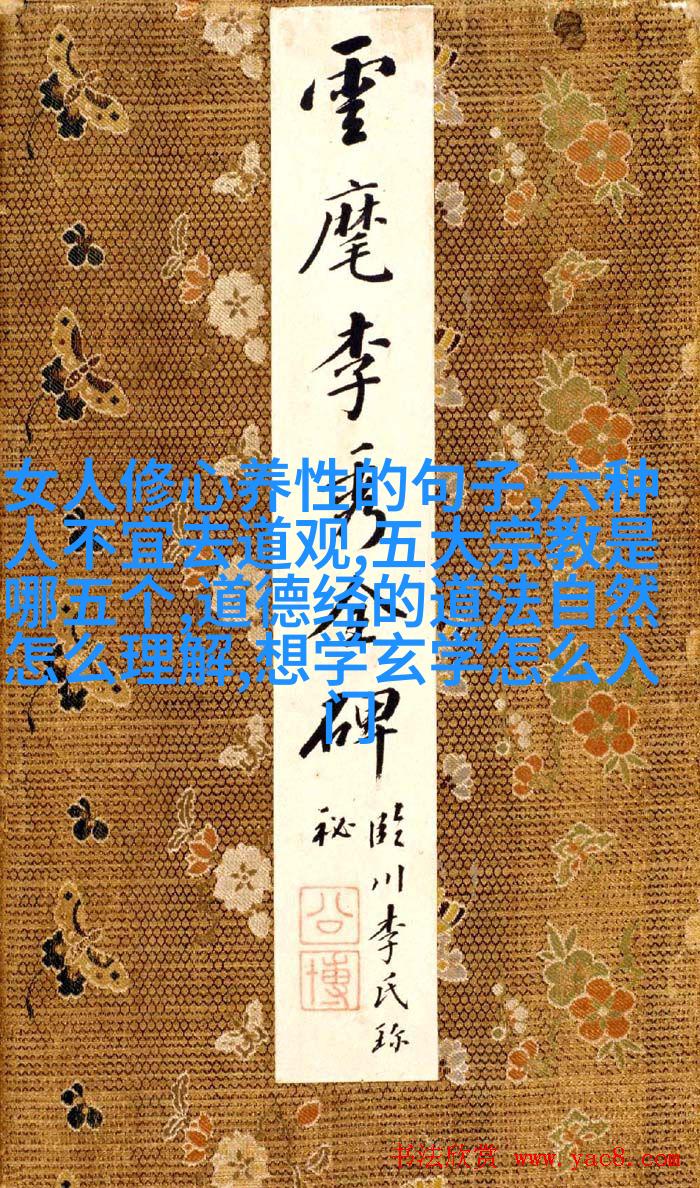 雲麾李秀全碑
臨川李氏珍
秘
公博
女人修心养性的句子,六种
人不宜去道观,五大宗教是
哪五个,道德经的道法自然
怎么理解,想学玄学怎么入
门
书法欣赏 www.yac8.com